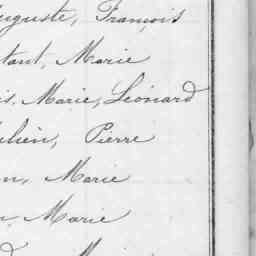 Auguste, François
tant, Marie
is, Marie, Léonard
ulien, Pierre
n, Marie
Marie